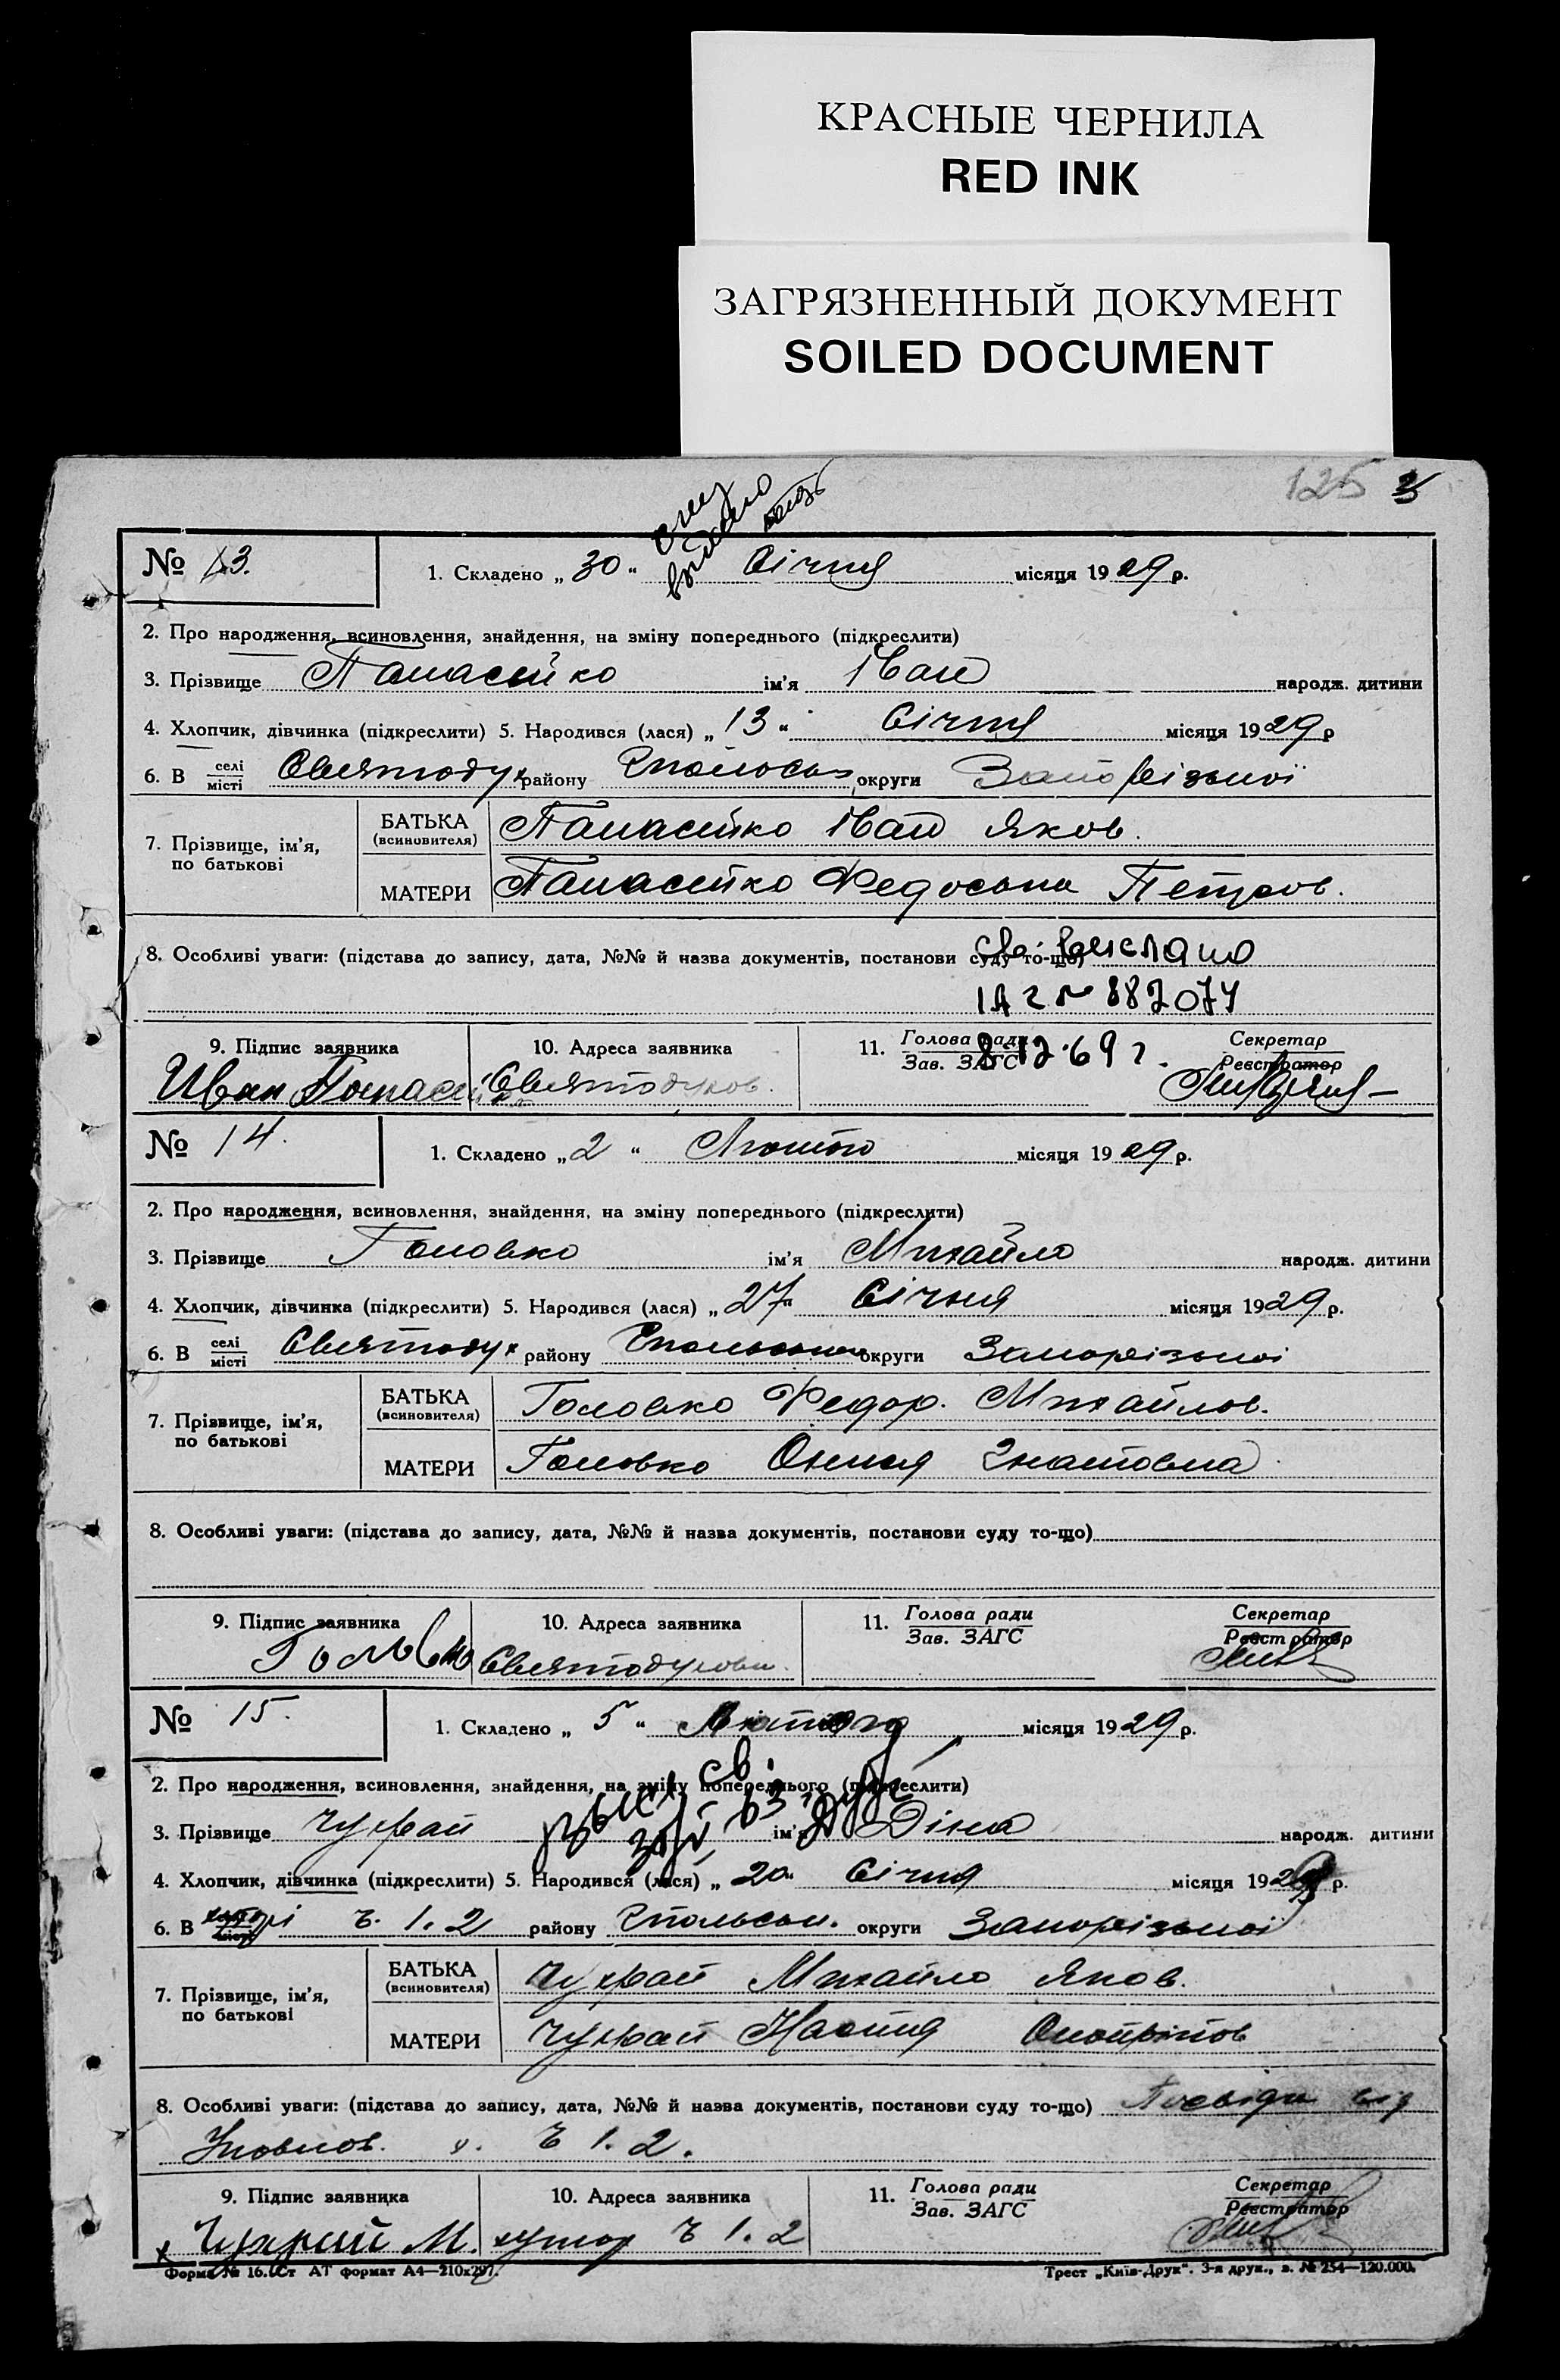 КРАСНЫЕ ЧЕРНИЛА
RED INK
ЗАГРЯЗНЕННЫЙ ДОКУМЕНТ
SOILED DOCUMENT
125
№ 13. 1. Складено „ 30 “ Січня місяця 1929 р.
2. Про народження, всиновлення, знайдення, на зміну попереднього (підкреслити)
3. Прізвище Панасейко ім'я Іван народж. дитини
4. Хлопчик, дівчинка (підкреслити) 5. Народився (лася) „ 13 “ Січня місяця 1929 р
6. В селі місті Святодух району округи Запорізької
7. Прізвище, ім'я, по батькові
БАТЬКА (всиновителя) Панасейко Іван Яков.
МАТЕРИ Панасейко Федоська Петров.
8. Особливі уваги: (підстава до запису, дата, №№ й назва документів, постанови суду то-що) св. выслано
887074
9. Підпис заявника 10. Адреса заявника 11. Голова ради Зав. ЗАГС 8.12.69 г. Секретар Реєстратор
Иван Святодухов.
№ 14. 1. Складено „ 2 “ Лютого місяця 1929 р.
2. Про народження, всиновлення, знайдення, на зміну попереднього (підкреслити)
3. Прізвище Головко ім'я Михайло народж. дитини
4. Хлопчик, дівчинка (підкреслити) 5. Народився (лася) „ 27 “ Січня місяця 1929 р.
6. В селі місті Святодух району округи Запорізької
7. Прізвище, ім'я, по батькові
БАТЬКА (всиновителя) Головко Федор. Михайлов.
МАТЕРИ Головко
8. Особливі уваги: (підстава до запису, дата, №№ й назва документів, постанови суду то-що)
9. Підпис заявника 10. Адреса заявника 11. Голова ради Зав. ЗАГС Секретар Реєстратор
Головко
№ 15. 1. Складено „ 5 “ Лютого місяця 1929 р.
2. Про народження, всиновлення, знайдення, на зміну попереднього (підкреслити)
3. Прізвище Чухрай ім'я Діна народж. дитини
4. Хлопчик, дівчинка (підкреслити) 5. Народився (лася) „ 20 “ Січня місяця 1929 р.
6. В хуторі ч. 1.2 району округи Запорізької
7. Прізвище, ім'я, по батькові
БАТЬКА (всиновителя) Чухрай Михайло Яков.
МАТЕРИ Чухрай
8. Особливі уваги: (підстава до запису, дата, №№ й назва документів, постанови суду то-що) від
х. ч 1.2.
9. Підпис заявника 10. Адреса заявника 11. Голова ради Зав. ЗАГС Секретар Реєстратор
Чухрай М. хутор ч 1.2
Форма № 16. Ст АТ формат А4—210x297. Трест „Київ-Друк“. 3-я друк., з. № 254—120.000.